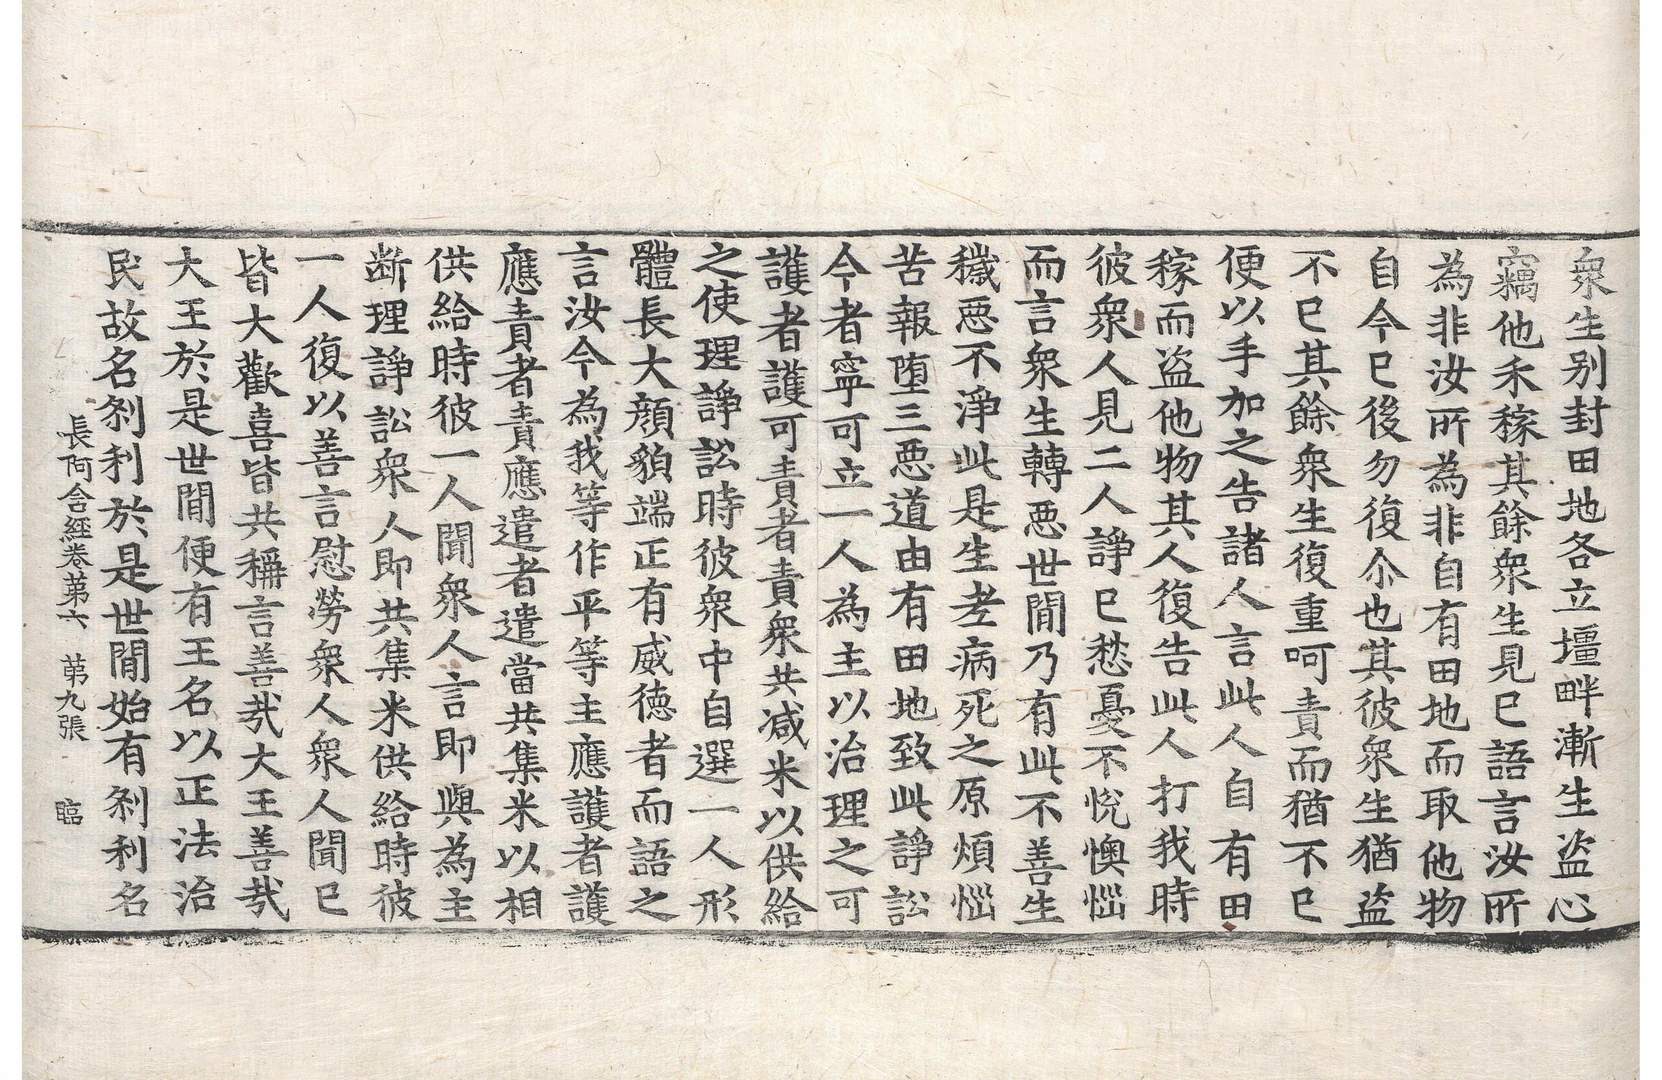 衆生別封田地各立壃畔漸生盗心
竊他禾稼其餘衆生見巳語言汝所
為非汝所為非自有田地而取他物
自今巳後勿復尒也其彼衆生猶盗
不巳其餘衆生復重呵責而猶不巳
便以手加之告諸人言此人自有田
稼而盗他物其人復告此人打我時
彼衆人見二人諍巳愁憂不悅懊惱
而言衆生轉惡世間乃有此不善生
穢惡不淨此是生老病死之原煩惱
苦報墮三惡道由有田地致此諍訟
今者寧可立一人為主以治理之可
護者護可責者責衆共減米以供給
之使理諍訟時彼衆中自選一人形
體長大顔貌端正有威德者而語之
言汝今為我等作平等主應護者護
應責者責應遣者遣當共集米以相
供給時彼一人聞衆人言即與為主
断理諍訟衆人即共集米供給時彼
一人復以善言慰勞衆人衆人聞巳
皆大歡喜皆共稱言善哉大王善哉
大王於是世間便有王名以正法治
民故名刹利於是世間始有刹利名
長阿含經卷第六 第九張 臨